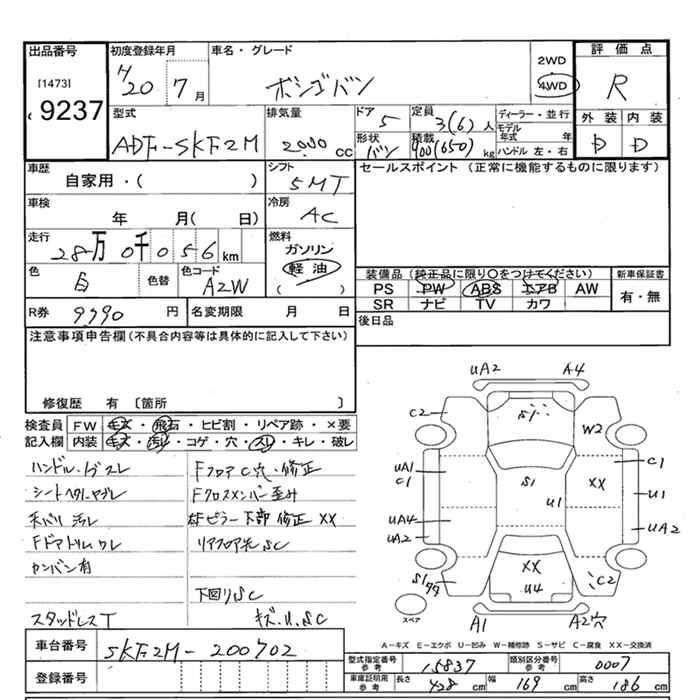 出品番号 初度登録年月 車名・グレード 評価点
[1473] 9237
H20 7月 ボンゴバン 2WD 4WD R
型式 排気量 ドア 定員 ディーラー・並行 外装 内装
ADF-SKF2M 2000 cc 5 3(6)人 モデル年式 年 D D
形状 積載 ハンドル 左・右
バン 900(650)kg
車歴 シフト セールスポイント (正常に機能するものに限ります)
自家用・( ) 5MT
車検 冷房
年 月( 日) AC
走行 燃料
28万0千056km ガソリン
色 色替 色コード 軽油
白 A2W ( )
装備品 (純正品に限り○をつけてください) 新車保証書
PS PW ABS エアB AW 有・無
SR ナビ TV カワ
R券 9990円 名変期限 月 日 後日品
注意事項申告欄(不具合内容等は具体的に記入して下さい)
修復歴 有 〔箇所 〕
検査員 FW キズ・飛石・ヒビ割・リペア跡・×要
記入欄 内装 キズ・汚れ・コゲ・穴・スレ・キレ・破レ
ハンドル・ノブスレ Fフロア C穴・修正
Fクロスメンバー歪み
天バリ 汚レ ピラー下部 修正 XX
Fドアトリムワレ リアフロア先SC
カンバン有
下回りSC
スタッドレスT キズ.U.SC
UA2 A4
C2 S1 W2
UA1 C1 S1 U1 XX C1 U1
UA4 UA2 UA2
XX U4 C2
スペア A1 A2穴
A－キズ E－エクボ U－凹み W－補修跡 S－サビ C－腐食 XX－交換済
車台番号 SKF2M-200702
型式指定番号 参考 15837 類別区分番号 参考 0007
登録番号 車庫証明用 参考 長さ 428cm 幅 169cm 高さ 186cm